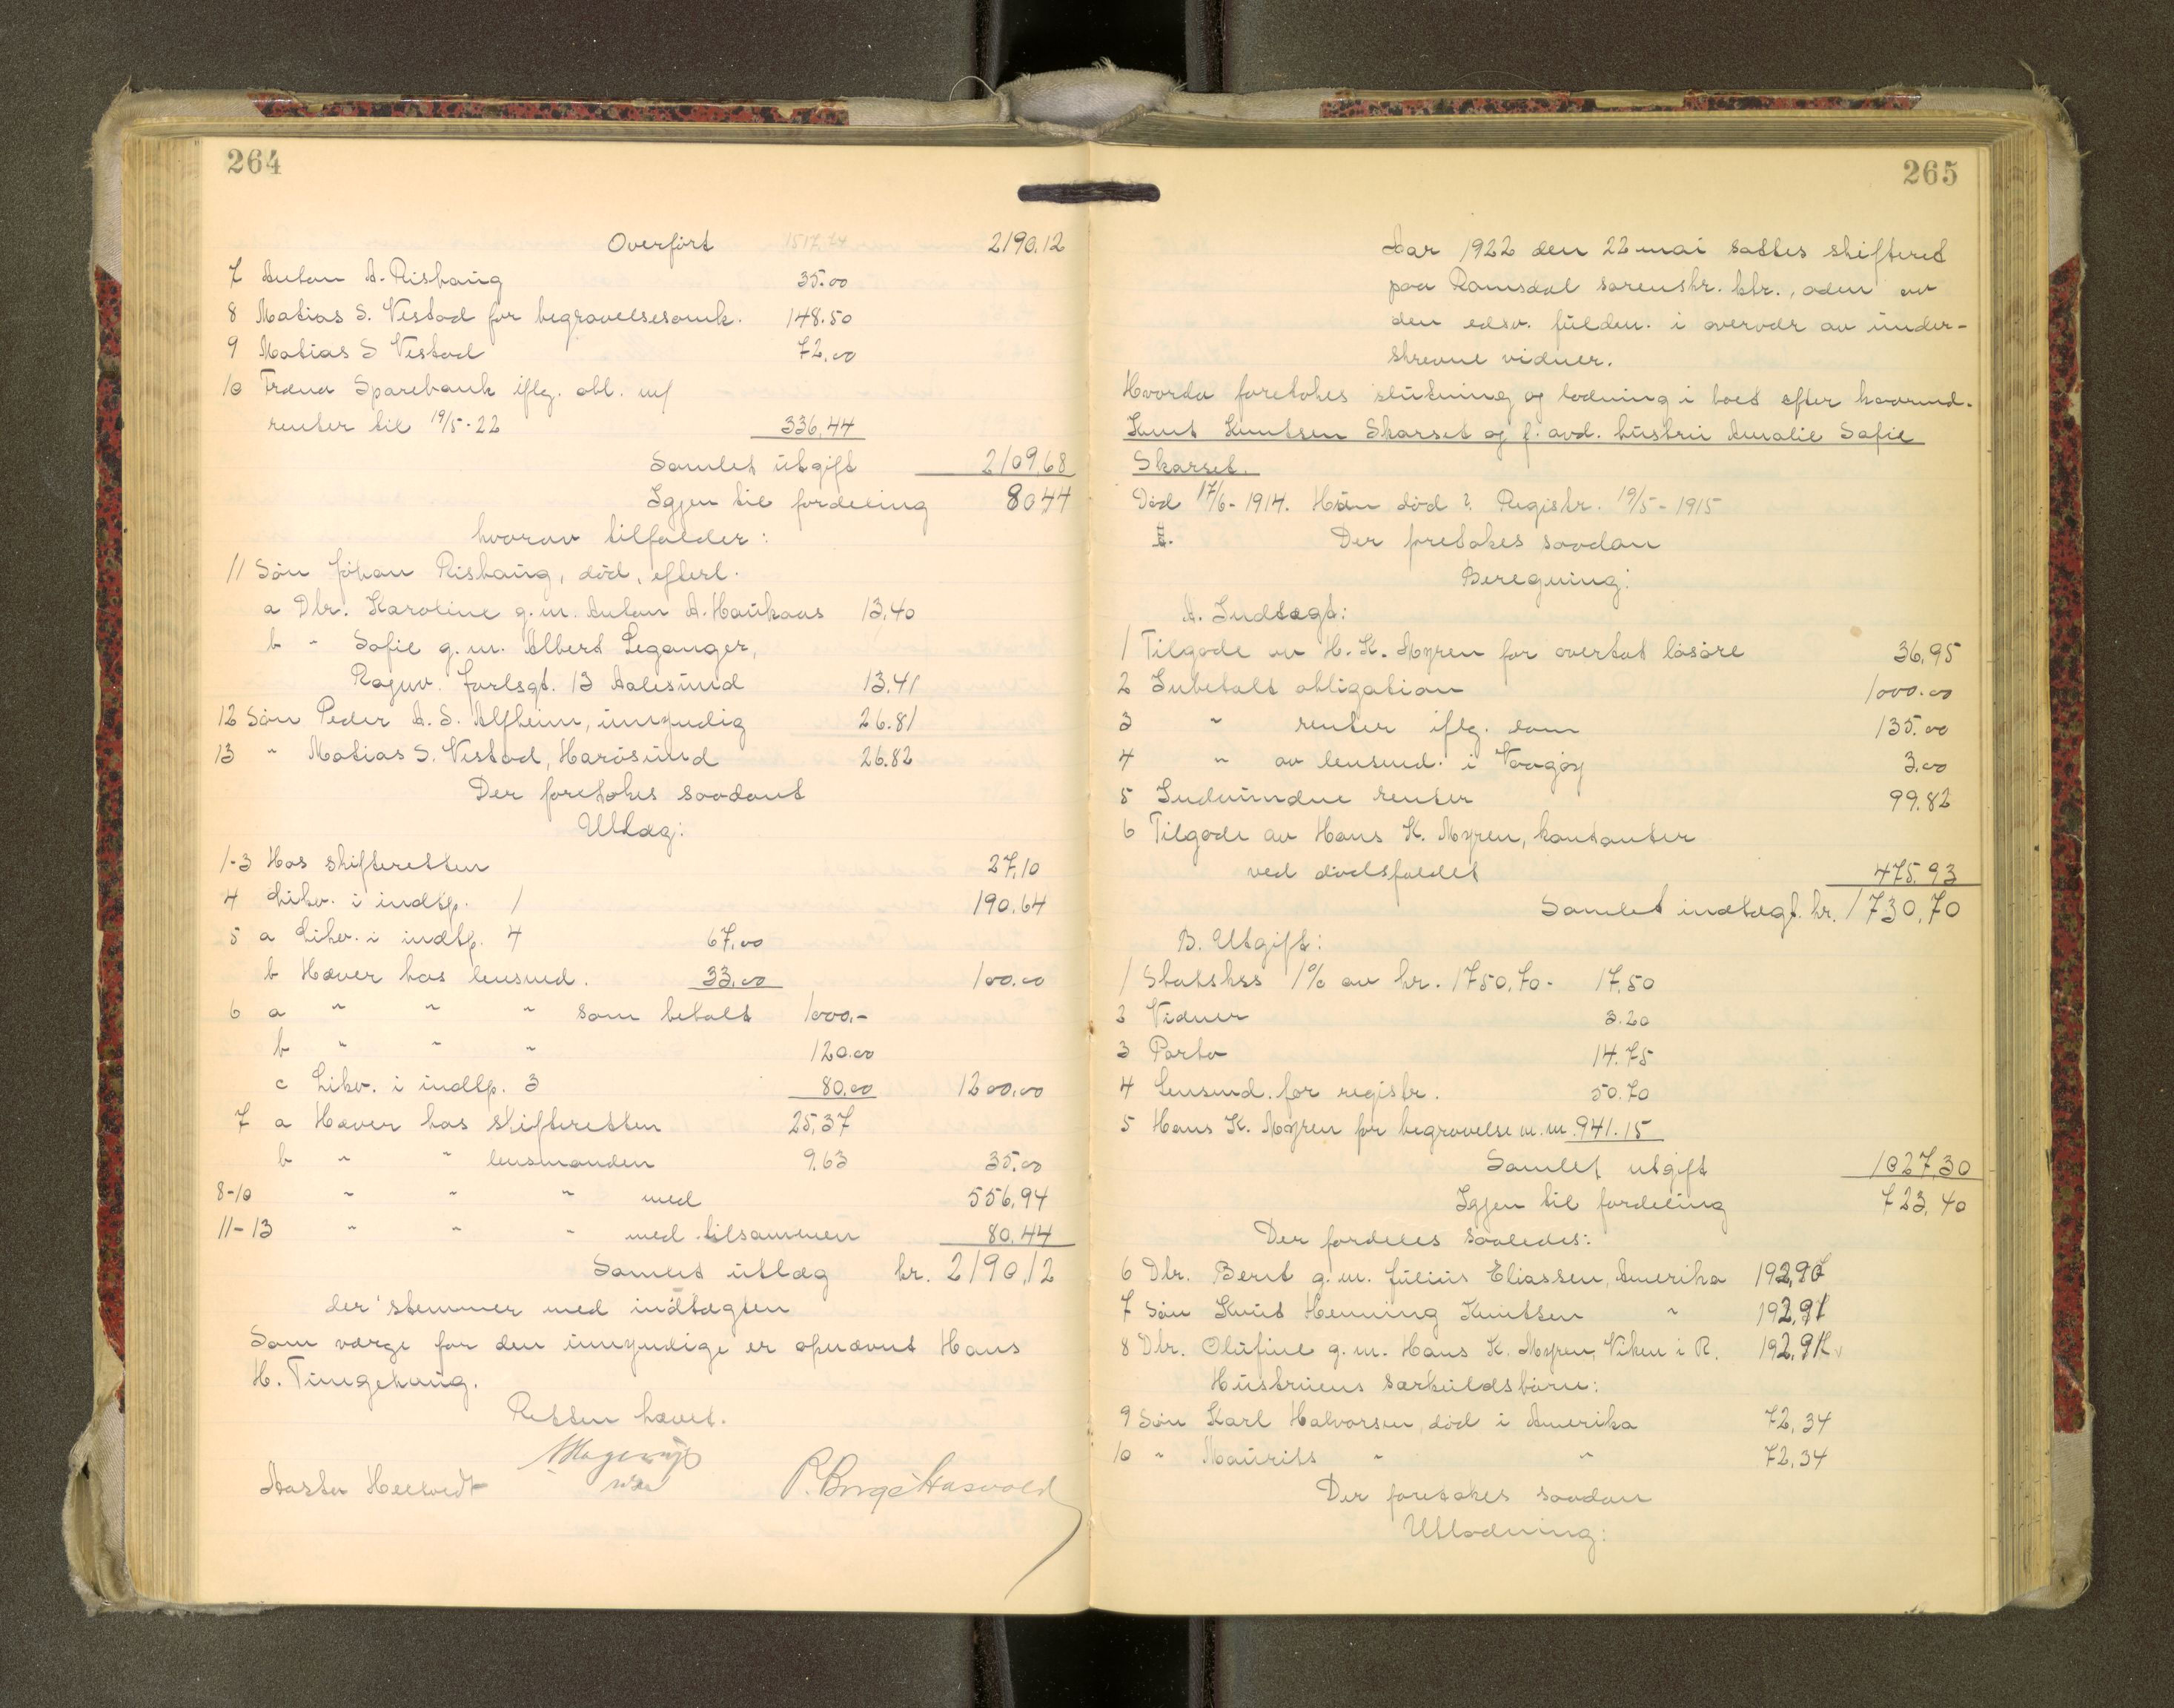 264
Overført 1517.74 2190.12
7 Anton A. Rishaug 35.00
8 Matias S. Vestad for begravelsesomk. 148.50
9 Matias S Vestad 72.00
10 Fræna Sparebank iflg. obl. m/
renter til 19/5-22 336,44
Samlet utgift 2109,68
Igjen til fordeling 80,44
hvorav tilfalder:
11 Søn Johan Rishaug, død, efterl.
a Dtr. Karoline g.m. Anton A. Haukaas 13,40
b " Sofie g.m. Albert Leganger,
Ragnv. Jarlsgt. 13 Aalesund 13.41
12 Søn Peder A. S. Alfheim, umyndig 26.81
13 " Matias S. Vestad, Harøsund 26.82
Der foretokes saadant
Utlæg:
1-3 Hos skifteretten 27,10
4 Likv. i indtp. 1 190.64
5 a Likv. i indtp. 4 67,00
b Hæver hos lensmd. 33,00 100.00
6 a " " " som betalt 1000.-
b " " " 120.00
c Likv. i indtp. 3 80,00 1200,00
7 a Hæver hos skifteretten 25,37
b " " lensmanden 9.63 35.00
8-10 " " " med 556,94
11-13 " " " med tilsammen 80,44
Samlet utlæg kr. 2190,12
der stemmer med indtægten
Som værge for den umyndige er opnævnt Hans
H. Tungehaug.
Retten hævet.
265
Aar 1922 den 22 mai sattes skifteret
paa Romsdal sorenskr. ktr., aden av
den edsv. fuldm. i overvær av under-
skrevne vidner.
Hvorda foretokes slutning og lodning i boet efter kaarmd.
Knut Knutsen Skarset og f. avd. hustru Amalie Sofie
Skarset.
Død 17/6-1914. Hun død ? Registr. 19/5-1915
Der foretokes saadan
Beregning:
A. Indtægt:
1 Tilgode av H. K. Myren for overtat løsøre 36,95
2 Inbetalt obligation 1000.00
3 " renter iflg. dom 135.00
4 " av lensmd. i Vaagøy 3.00
5 Indvundne renter 99.82
6 Tilgode av Hans K. Myren, kontanter
ved dødsfaldet 475.93
Samlet indtægt. kr. 1730,70
B. Utgift:
1 Statskss 1% av kr. 1750,70- 17,50
2 Vidner 3.20
3 Porto 14.75
4 lensmd. for registr. 50.70
5 Hans K. Myren for begravelse m.m. 941.15
Samlet utgift 1027,30
Igjen til fordeling 723,40
Der fordeles saaledes:
6 Dtr. Berit g.m. Julius Eliassen, Amerika 192,90
7 Søn Knut Henning Knutsen " 192,91
8 Dtr. Olufine g.m. Hans K. Myren, Viken i R. 192,91
Hustruens særkuldsbørn:
9 Søn Karl Halvorsen, død i Amerika 72,34
10 " Maurits " " 72,34
Der foretokes saadan
Utlodning: